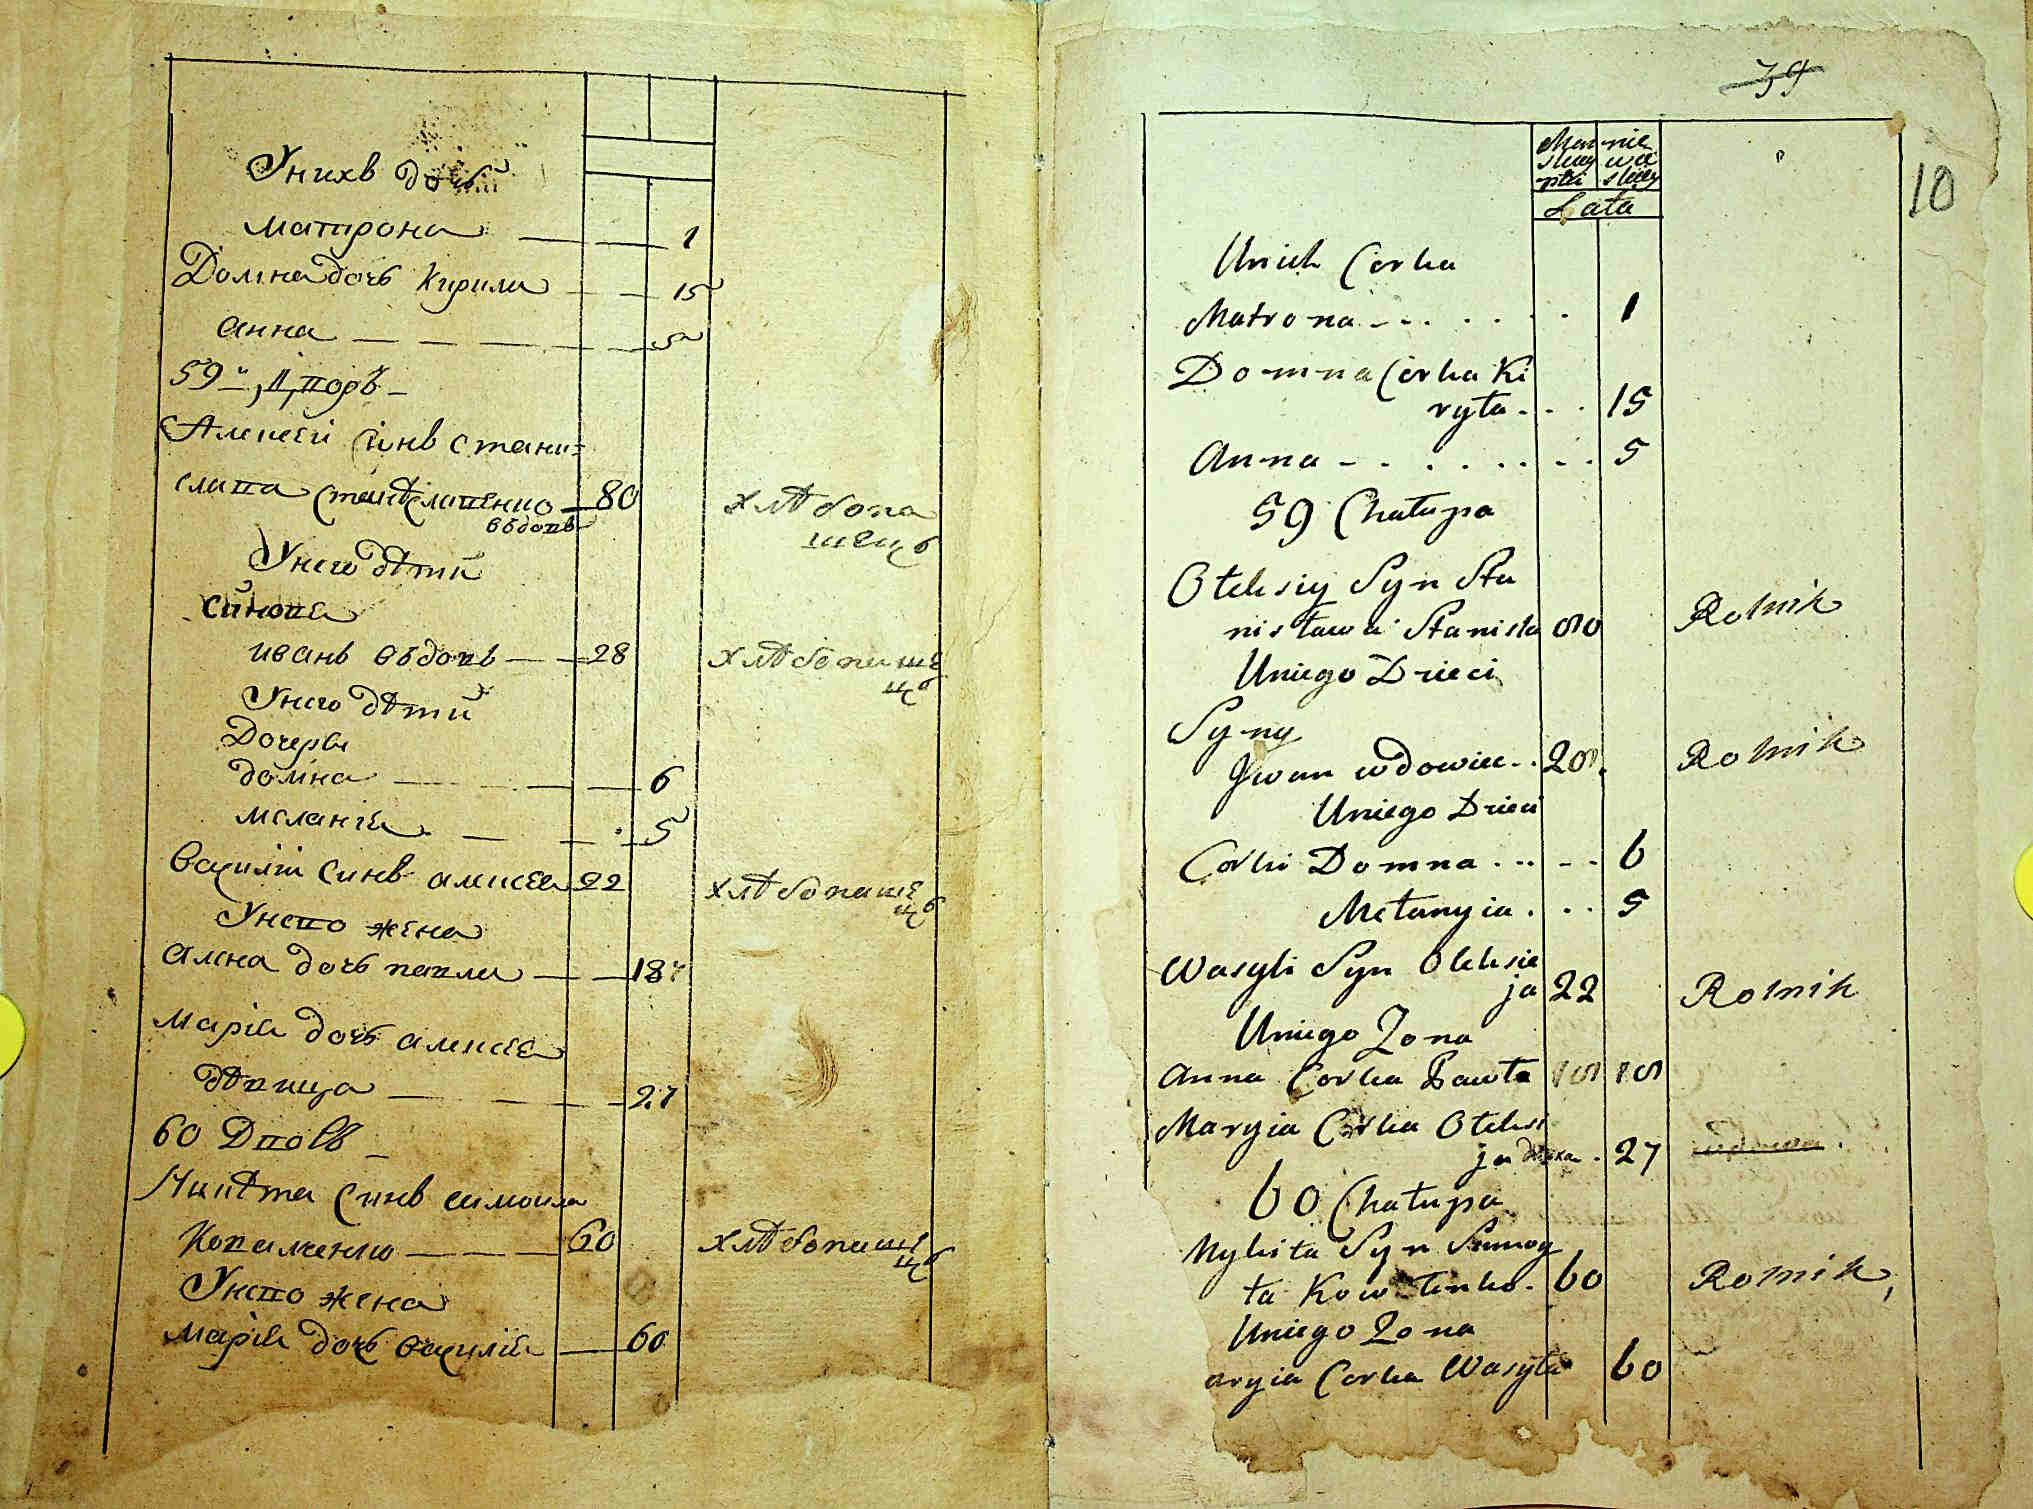 Унихъ дочь
матрона 1
Домна дочь Кирила 15
анна 5
59й Дворъ
Алексей синъ Стани=
слава Станѣславенко 80 хлѣбопа
вдовъ шецъ
Унего дѣти
синове
иванъ вдовъ 28 хлѣбопаше
цъ
Унего дѣти
Дочеры
домна 6
мелания 5
Василий синъ алексея 22 хлѣбопаше
цъ
Унево жена
анна дочь павла 18
Мария дочь алексея
дѣвица 27
60 Дворъ
Никѣта синъ самоила
Коваленко 60 хлѣбопаше
цъ
Унево жена
Мария дочь василия 60
39
10
Męz nie
sczy wia
zni sczy
Lata
Unich Corka
Matrona 1
Domna Corka Ki
ryła 15
Anna 5
59 Chałupa
Ołeksiy Syn Sta
nisława Stanisła 80 Rolnik
Uniego Dzieci
Syny
Jwan wdowiec 28 Rolnik
Uniego Dzieci
Corki Domna 6
Mełanyia 5
Wasyli Syn Ołeksie
ja 22 Rolnik
Uniego Zona
Anna Corka Pawła 18 18
Maryia Corka Ołeksi
ja 27
60 Chałupa
Mykita Syn Samoy
ła Kowalenko 60 Rolnik
Uniego Zona
aryia Corka Wasyla 60